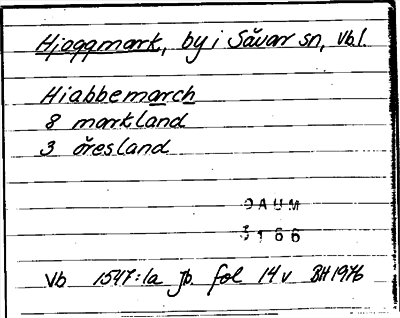 Hjoggmark, by i Sävar sn, Vbl.
Hiabbemarch
8 markland
3 öresland
DAUM
3166
Vb 1547:1a Jb. fol 14 v BH 1976